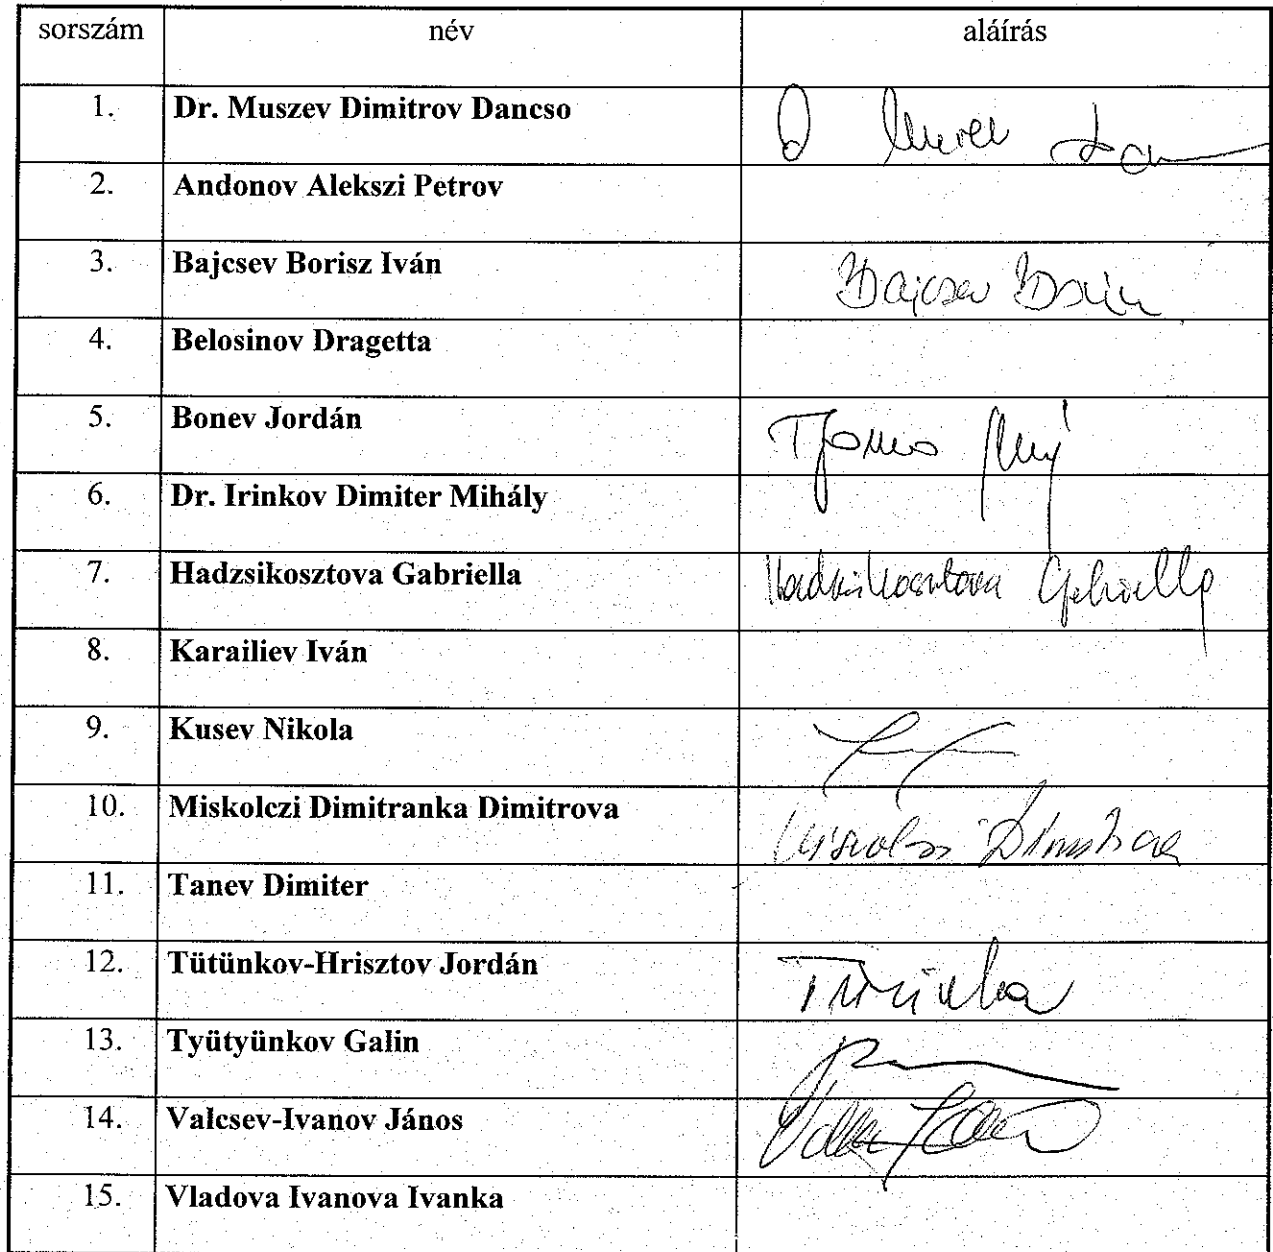 sorszám név aláírás
1. Dr. Muszev Dimitrov Dancso
2. Andonov Alekszi Petrov
3. Bajcsev Borisz Iván Bajcsev
4. Belosinov Dragetta
5. Bonev Jordán
6. Dr. Irinkov Dimiter Mihály
7. Hadzsikosztova Gabriella Hadzsikosztova Gabriella
8. Karailiev Iván
9. Kusev Nikola
10. Miskolczi Dimitranka Dimitrova
11. Tanev Dimiter
12. Tütünkov-Hrisztov Jordán
13. Tyütyünkov Galin
14. Valcsev-Ivanov János
15. Vladova Ivanova Ivanka